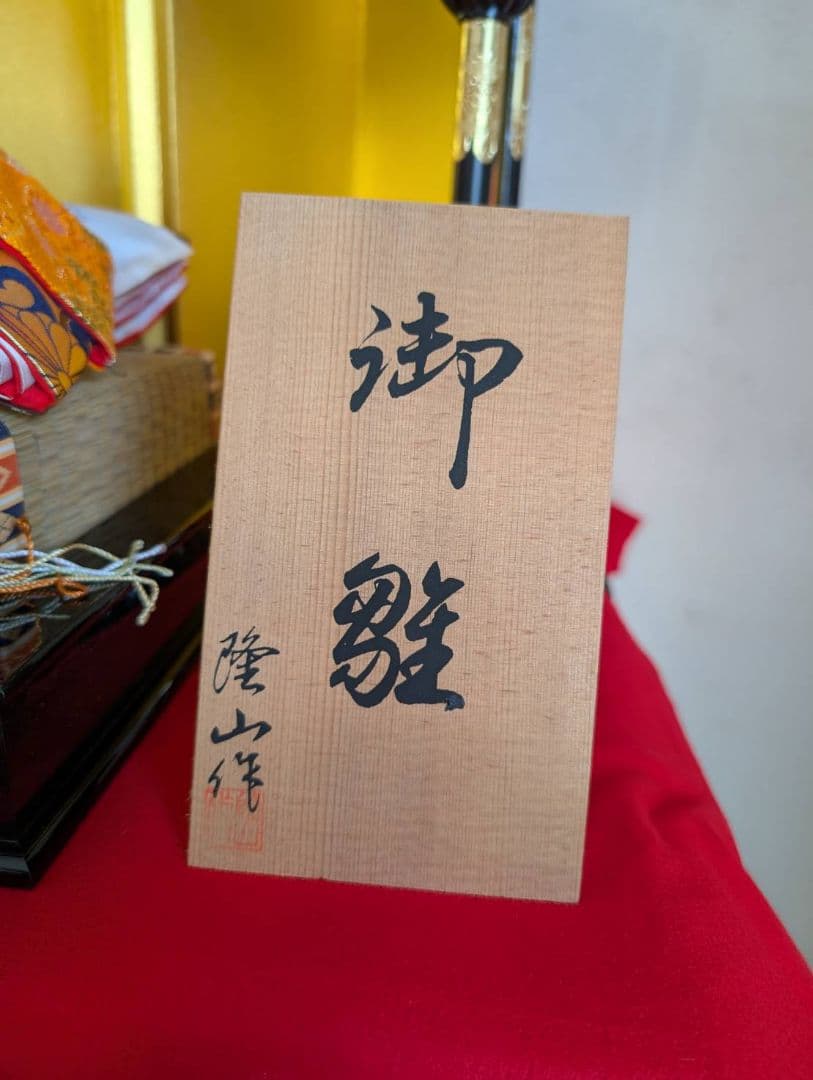 御雛
隆山作